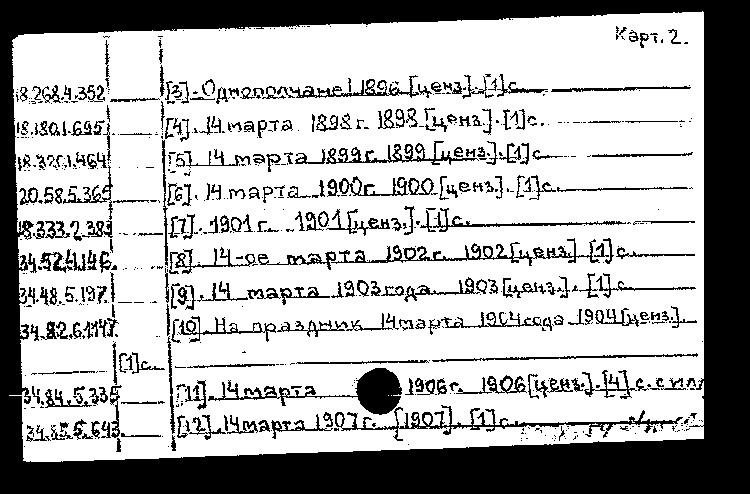 Карт. 2.
18.268.4.352 [3]. Однополчане! 1896 [ценз.]. [1] с.
18.180.1.695 [4]. 14 марта 1898 г. 1898 [ценз.]. [1] с.
18.320.1.464 [5]. 14 марта 1899 г. 1899 [ценз.]. [1] с.
20.58.5.365 [6]. 14 марта 1900 г. 1900 [ценз.]. [1] с.
18.333.2.383 [7]. 1901 г. 1901 [ценз.]. [1] с.
34.52.4.146. [8]. 14-ое марта 1902 г. 1902 [ценз.]. [1] с.
34.48.5.197 [9]. 14 марта 1903 года. 1903 [ценз.]. [1] с.
34.82.6.1147 [10]. На праздник 14 марта 1904 года 1904 [ценз.].
[1] с.
34.84.5.335 [11]. 14 марта 1906 г. 1906 [ценз.]. [4] с. с илл
34.85.5.643. [12]. 14 марта 1907 г. [1907]. [1] с.